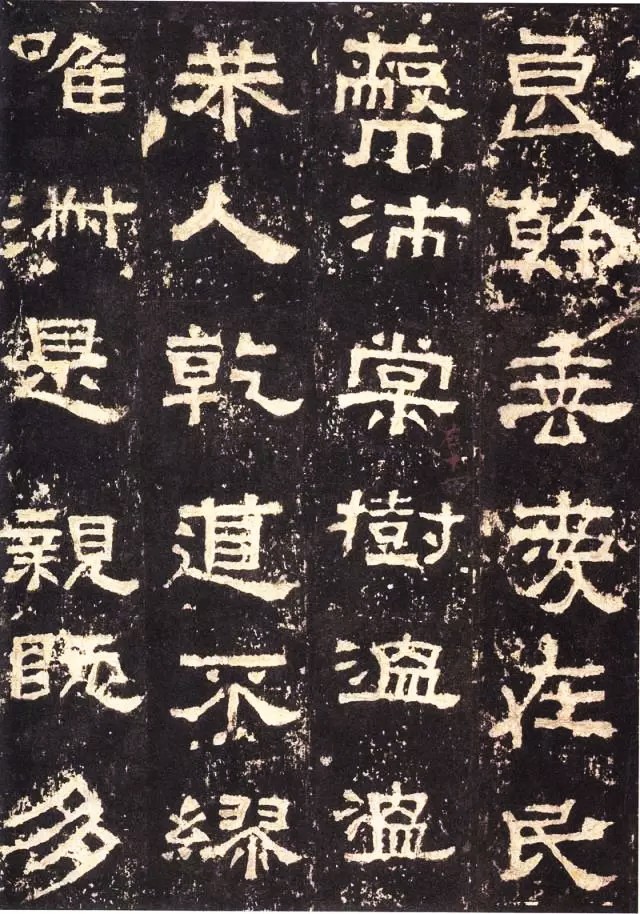 良幹垂愛在民
蔽沛棠樹溫溫
恭人乾道不繆
唯淑是親既多